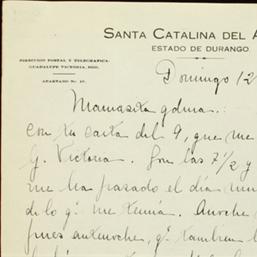 SANTA CATALINA DEL A
ESTADO DE DURANGO
DIRECCION POSTAL Y TELEGRAFICA:
GUADALUPE VICTORIA, DGO.
APARTADO No. 17.
Domingo 12
Mamasita qdma.:
Con tu carta del 9, que me
G. Victoria. Son las 7½ y
me ha pasado el día
de lo q. me temía. Anoche
pues antenoche, q. tambien